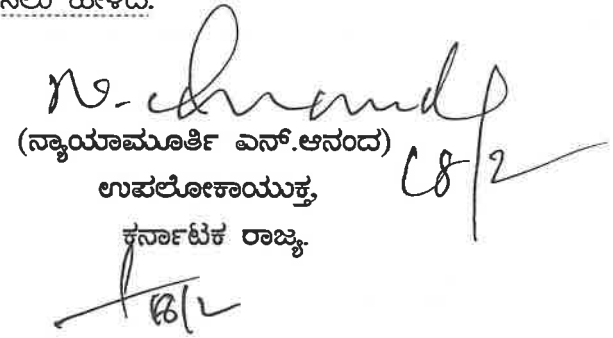 N. Anand
(ನ್ಯಾಯಾಮೂರ್ತಿ ಎನ್.ಆನಂದ)
18/2
ಉಪಲೋಕಾಯುಕ್ತ,
ಕರ್ನಾಟಕ ರಾಜ್ಯ.
18/2